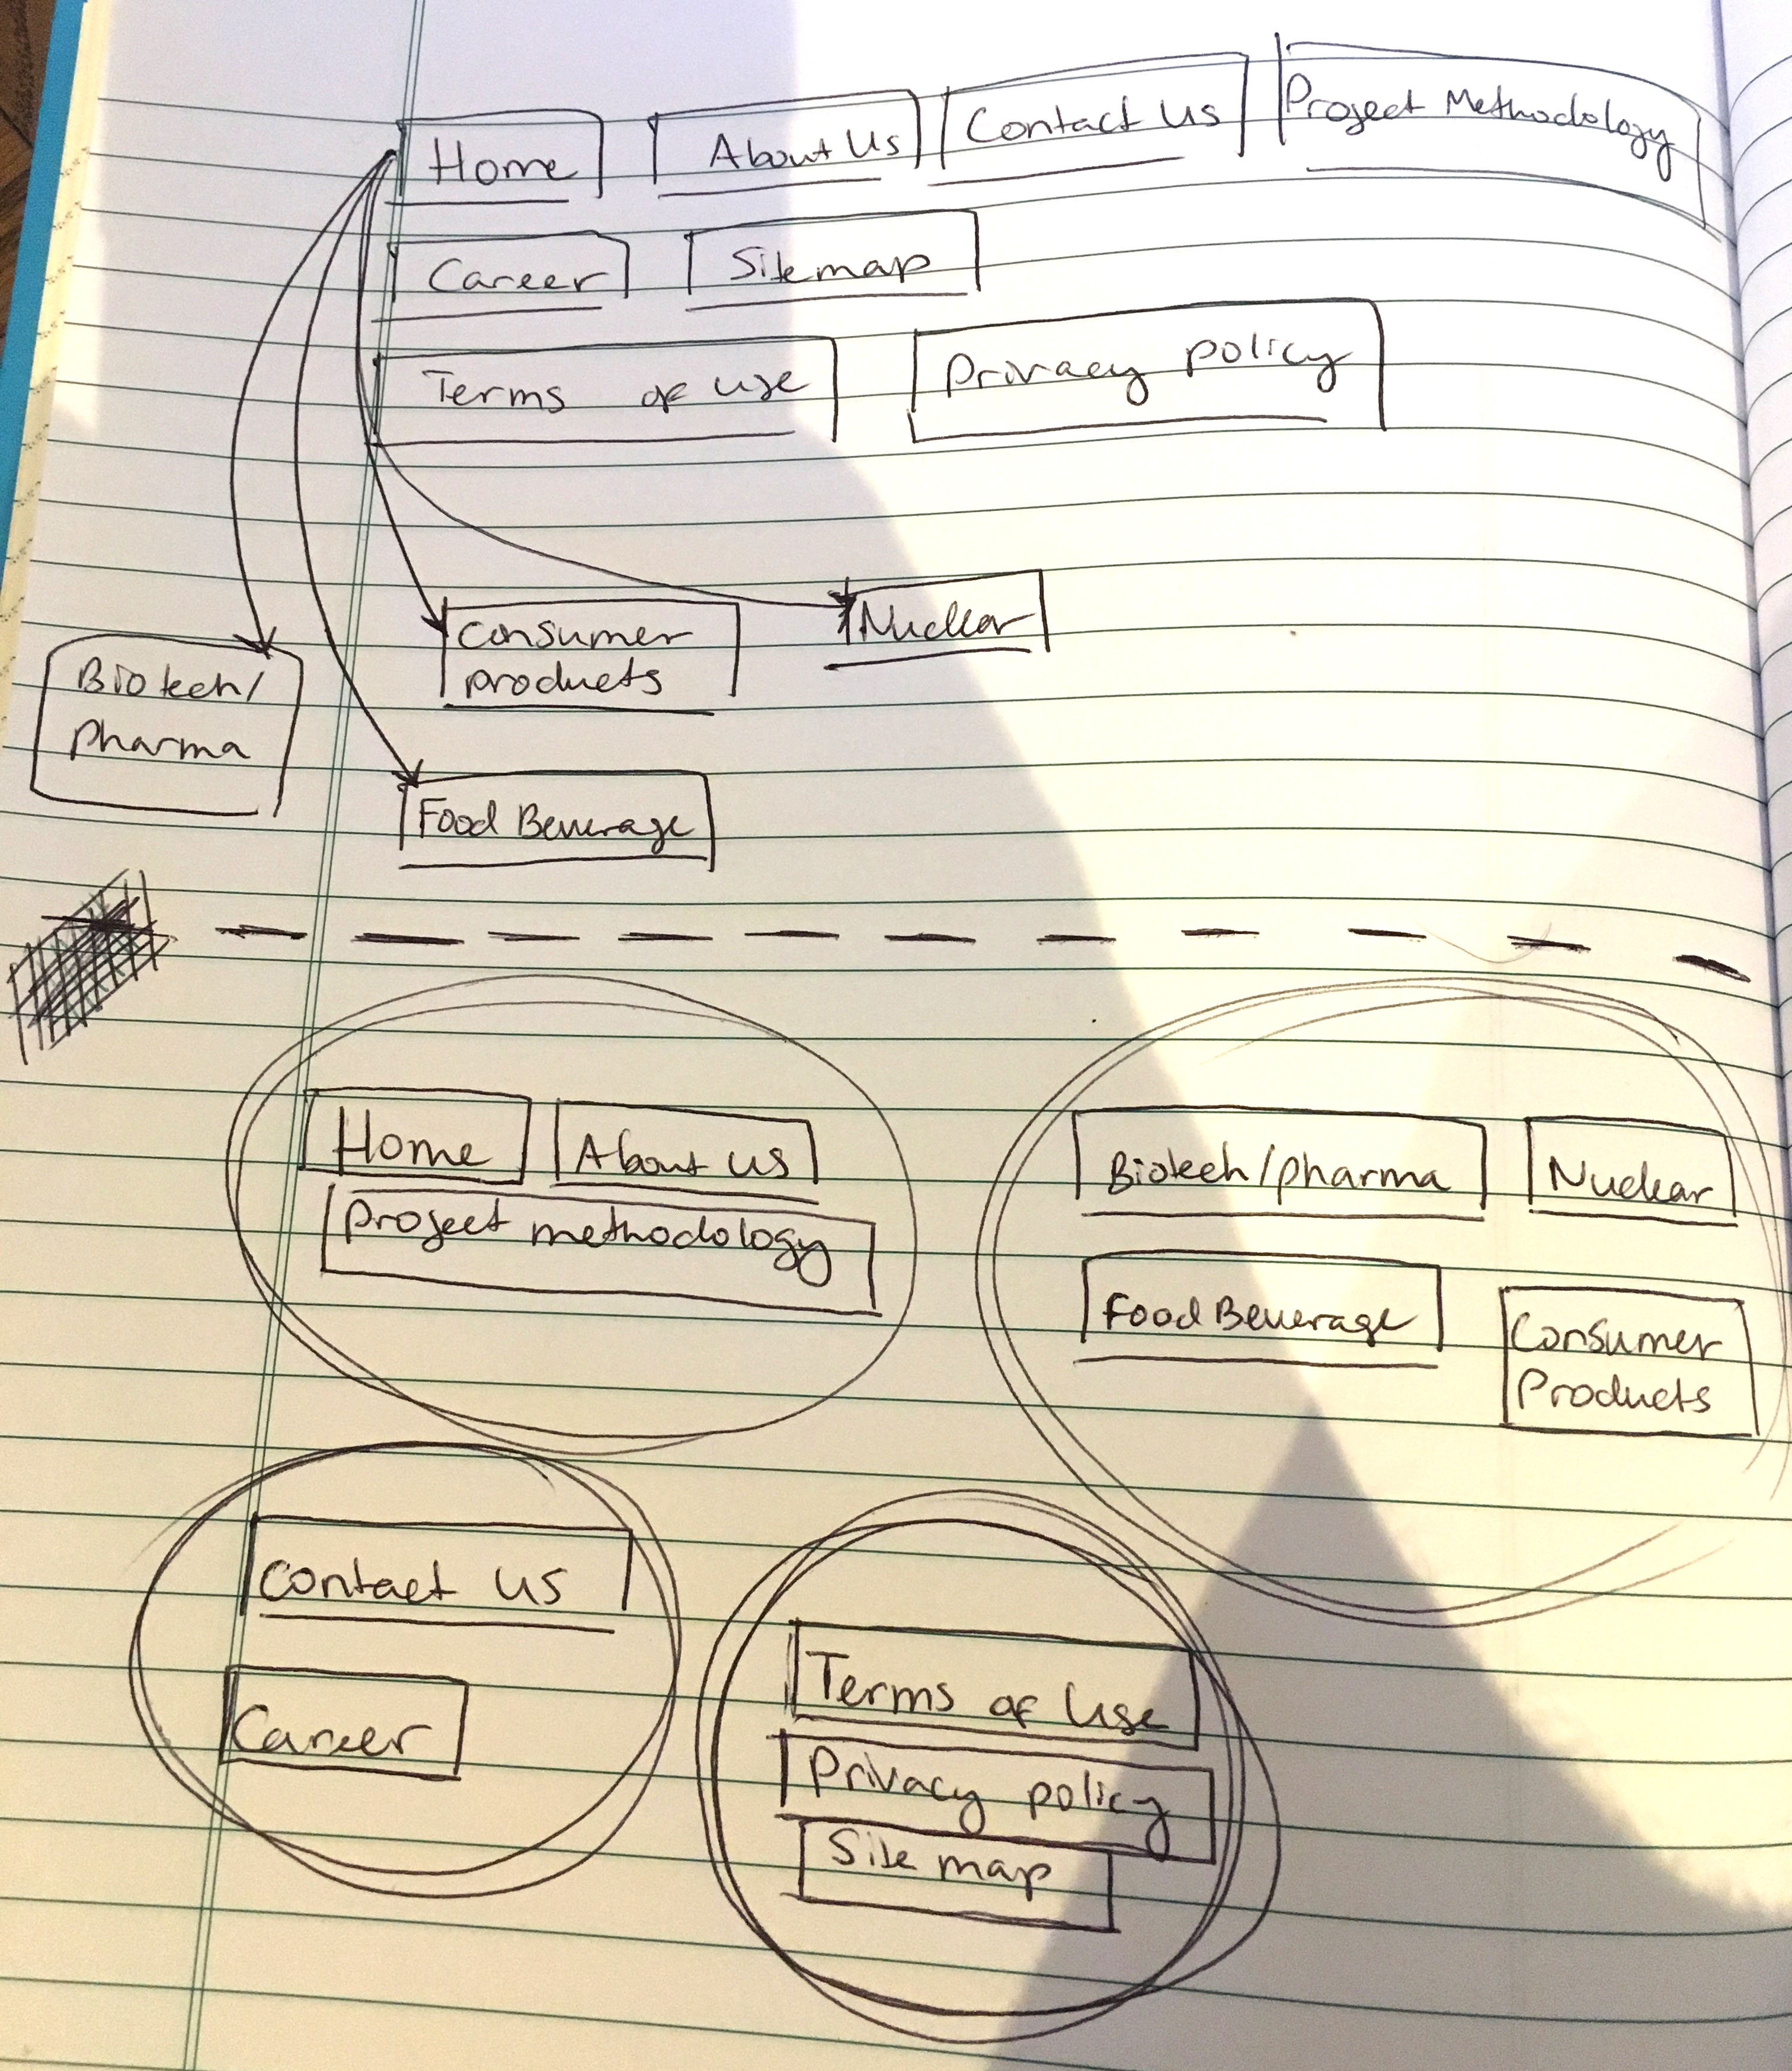 Home About Us Contact Us Project Methodology
Career Sitemap
Terms of use Privacy policy
Consumer
products
Nuclear
Biotech/
pharma
Food Beverage
Home About us
project methodology
Biotech/pharma Nuclear
Food Beverage
Consumer
Products
contact us
Career
Terms of Use
Privacy policy
Site map